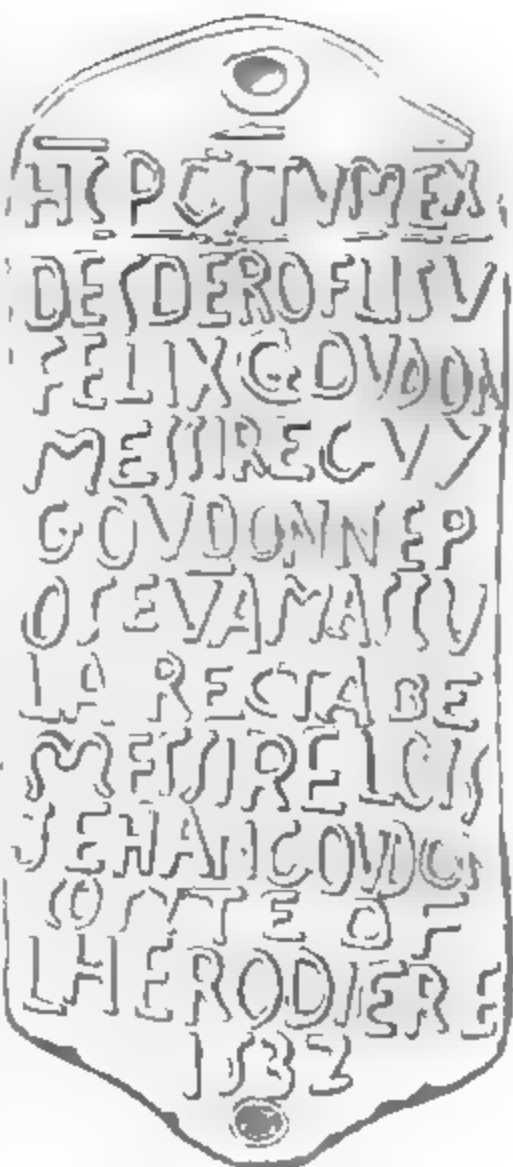 HC POSITVM EX
DESDERO FLISV
FELIX GOVDON
MESSIRE GVY
GOVDON NEP
OSEVAMASSV
LA RECTA BE
MESSIRE LCIS
JEHAN GOVDON
COMTE DE
LHERODIERE
1532